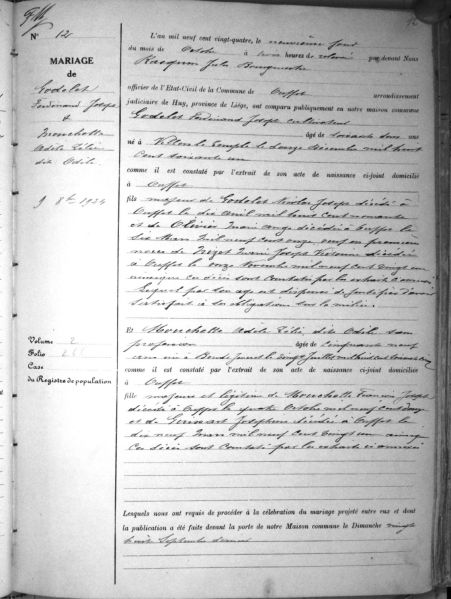 N° 12
MARIAGE
de
Godelet
Ferdinand Joseph
&
Mouchette
Adèle Zélie
dite Odile
9 8bre 1924
Volume 2
Folio
Case
du Registre de population
L'an mil neuf cent vingt-quatre, le neuvième jour
du mois de Octobre à trois heures de relevée par-devant Nous
Rasquin Jules Bourgmestre
officier de l'État-Civil de la Commune de Ouffet arrondissement
judiciaire de Huy, province de Liége, ont comparu publiquement en notre maison commune
Godelet Ferdinand Joseph cultivateur
âgé de soixante deux ans
né à Villers le Temple le douze décembre mil huit
cent soixante un
comme il est constaté par l'extrait de son acte de naissance ci-joint domicilié
à Ouffet
fils majeur de Godelet Nicolas Joseph décédé à
Ouffet le dix avril mil huit cent nonante
et de Olivier Marie décédée à Ouffet le
six Mars mil neuf cent onze, veuf en premières
noces de Marie Joseph décédée
à Ouffet le onze Novembre mil neuf cent vingt un
ainsi que ces décès sont constatés par les extraits ci annexés
lequel par son âge est dispensé de justifier d'avoir
satisfait à ses obligations sur la milice.
Et Mouchette Adèle Zélie dite Odile sans
profession âgée de cinquante neuf
ans née à le Juillet mil huit cent soixante cinq
comme il est constaté par l'extrait de son acte de naissance ci-joint domiciliée
à Ouffet
fille majeure et légitime de Mouchette François Joseph
décédé à Ouffet le quatre Octobre mil neuf cent
et de Joséphine décédée à Ouffet le
dix neuf Mars mil neuf cent vingt un ainsi que
ces décès sont constatés par les extraits ci annexés
Lesquels nous ont requis de procéder à la célébration du mariage projeté entre eux et dont
la publication a été faite devant la porte de notre Maison commune le Dimanche vingt
huit Septembre dernier